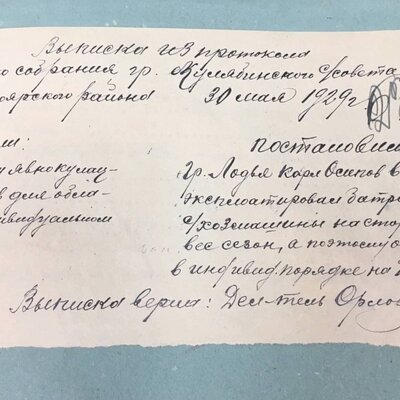 Выписка из протокола
го собрания гр. Кулябинского с/совета
оярского района 30 мая 1929 г.
ли: постановили
и явно кулац-
гр. Лодья Карл Осипов в
в для обла-
эксплоатировал батра
ивидуальном
с/хозмашины на стор
вес сезон, а поэтому о
в инdивид. порядке на
Выписка верна: Дел-тель Орлов